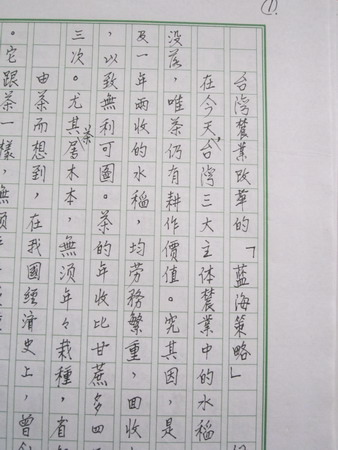 (1).
台灣農業改革的「藍海策略」
在今天,台灣三大主体農業中的水稻
没落，唯茶仍有耕作價值。究其因，是
及一年兩收的水稻，均劳務繁重，回收
，以致無利可圖。茶的年收比甘蔗多四
三次。尤其茶属木本，無须年々栽種，省
由茶而想到，在我國經濟史上，曾
。它跟茶一樣，無须